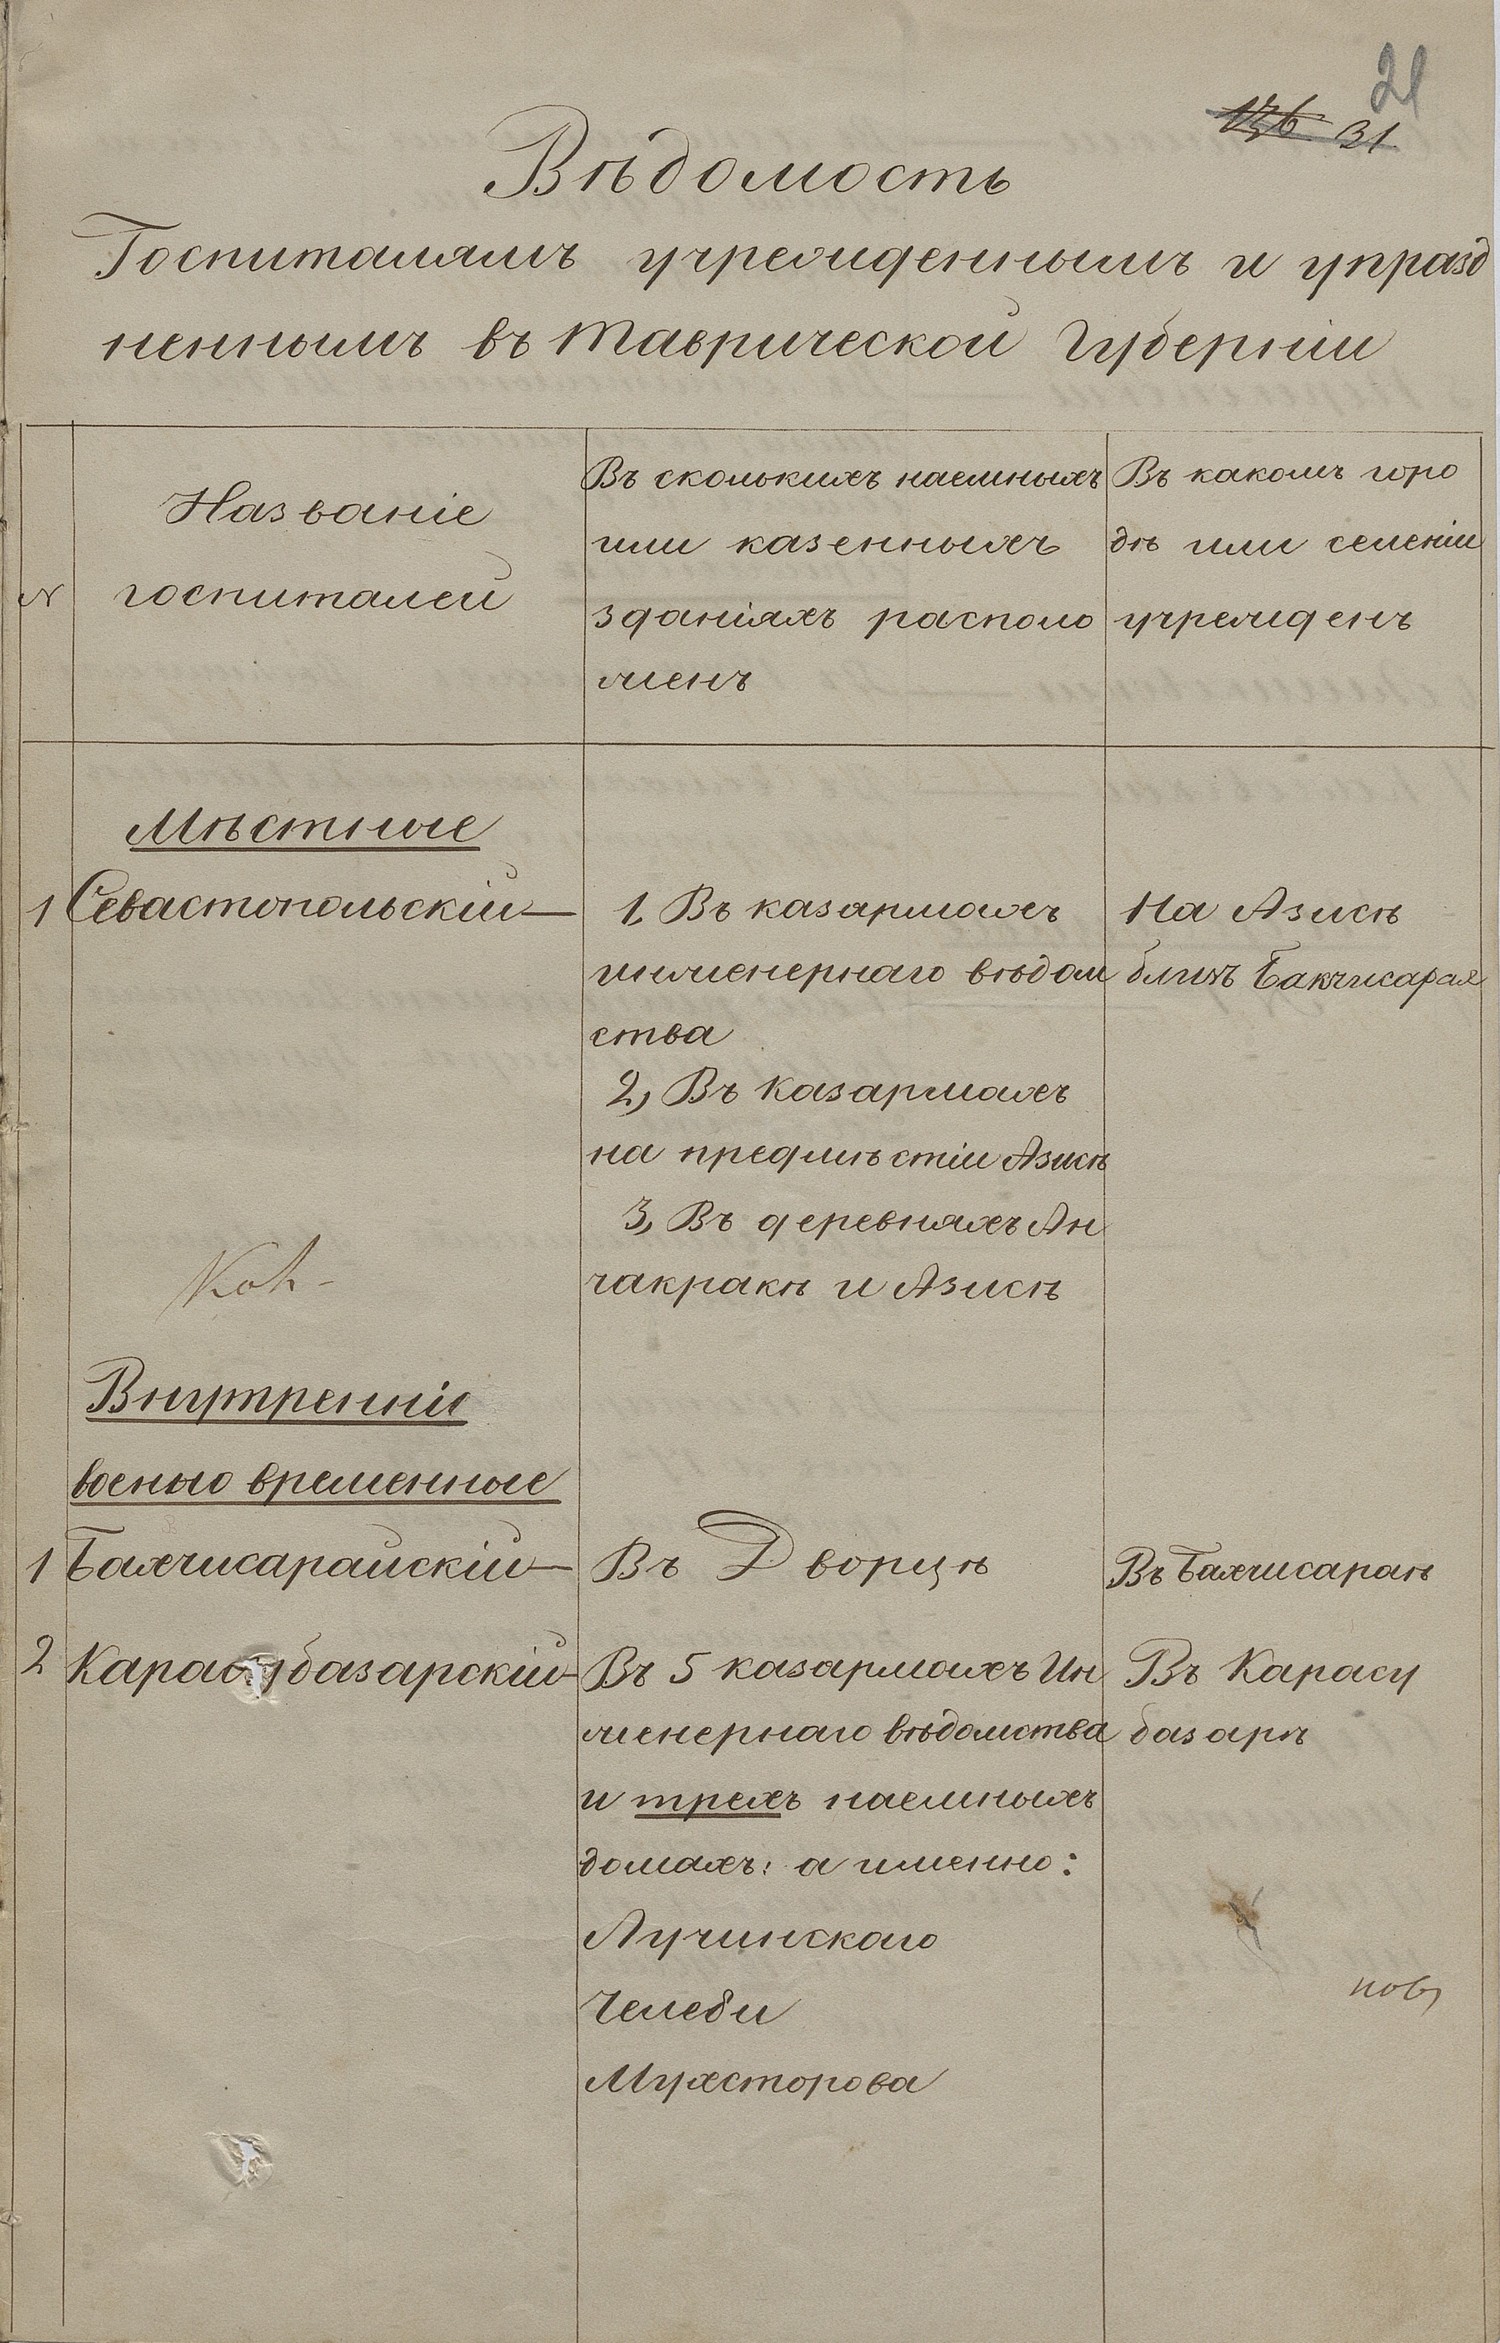 21
31
Вѣдомость
Госпиталямъ учрежденнымъ и упразд
неннымъ въ Таврической Губерніи
№
Названіе
госпиталей
Въ сколькихъ наемныхъ
или казенныхъ
зданіяхъ располо
женъ
Въ какомъ горо
дѣ или селеніи
учрежденъ
Мѣстные
1 Севастопольскій —
1, Въ казармахъ
инженернаго вѣдом
ства
2, Въ казармахъ
на предмѣстіи Азисѣ
3, Въ деревняхъ Ан
чакракѣ и Азисѣ
На Азисѣ
близъ Бакчисарая
Внутренніе
военно временные
1 Бахчисарайскій —
Въ Дворцѣ
Въ Бахчисараѣ
2 Карасубазарскій —
Въ 5 казармахъ Ин
женернаго вѣдомства
и трехъ наемныхъ
домахъ: а именно:
Лучинскаго
Челеби
Мухсторова
Въ Карасу
базарѣ